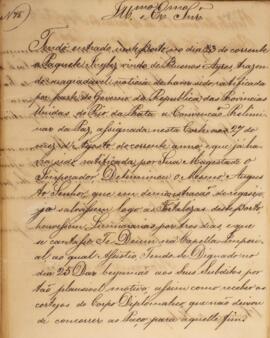 Nº 78
Ill.mo e Ex.mo Snr.
Tendo entrado neste Porto no dia 23 do corrente
o Paquete Inglez vindo de Buenos Ayres, trazen-
do a agradavel noticia de haver sido ratificada
por parte do Governo da Republica das Provincias
Unidas do Rio da Prata a Convenção Prelimi-
nar da Paz, assignada nesta Corte no dia 27 do
mez d'Agosto do corrente anno, e que já ha-
via sido ratificada por Sua Magestade o
Imperador Determinou o Mesmo Augus-
to Senhor, que em demonstração de regosi-
jo salvassem logo as Fortalezas deste Porto,
houvessem Luminarias por tres dias e que
se cantasse Te Deum na Capella Imperi-
al, ao qual Assistio, Tendo-se Dignado no
dia 25 Dar beijamão aos Seus Subditos por
tão plausivel motivo, assim como receber os
cortejos do Corpo Diplomatico que não deixou
de concorrer ao Paço para aquelle fim